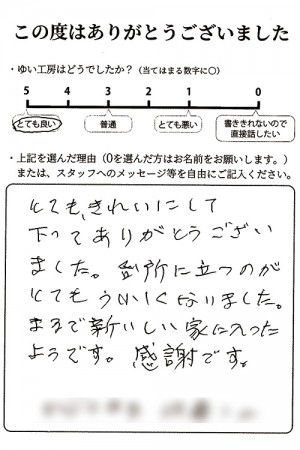 この度はありがとうございました
・ゆい工房はどうでしたか？（当てはまる数字に○）
5 4 3 2 1 0
とても良い 普通 とても悪い 書ききれないので
直接話したい
・上記を選んだ理由（0を選んだ方はお名前をお願いします。）
または、スタッフへのメッセージ等を自由にご記入ください。
とても、きれいにして
下ってありがとうござい
ました。台所に立つのが
とてもうれしくなりました。
まるで新いしい家に入った
ようです。感謝です。